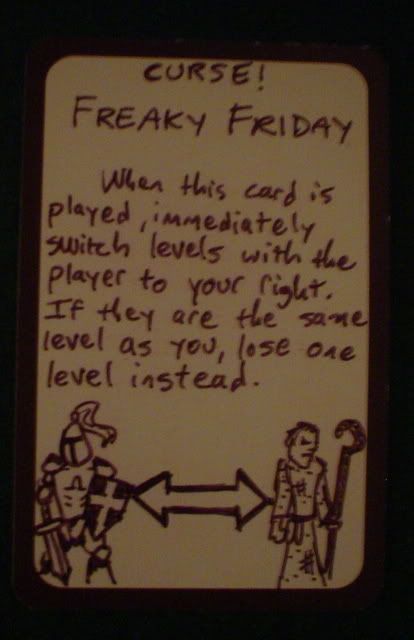 CURSE!
FREAKY FRIDAY
When this card is
played, immediately
switch levels with the
player to your right.
If they are the same
level as you, lose one
level instead.